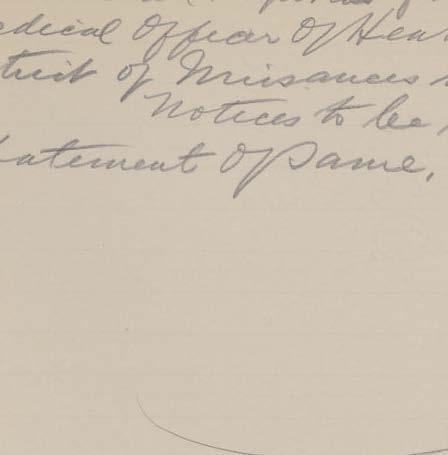 edical Officer Of Hea
trict of Nuisances
Notices to be
atement Of Same,